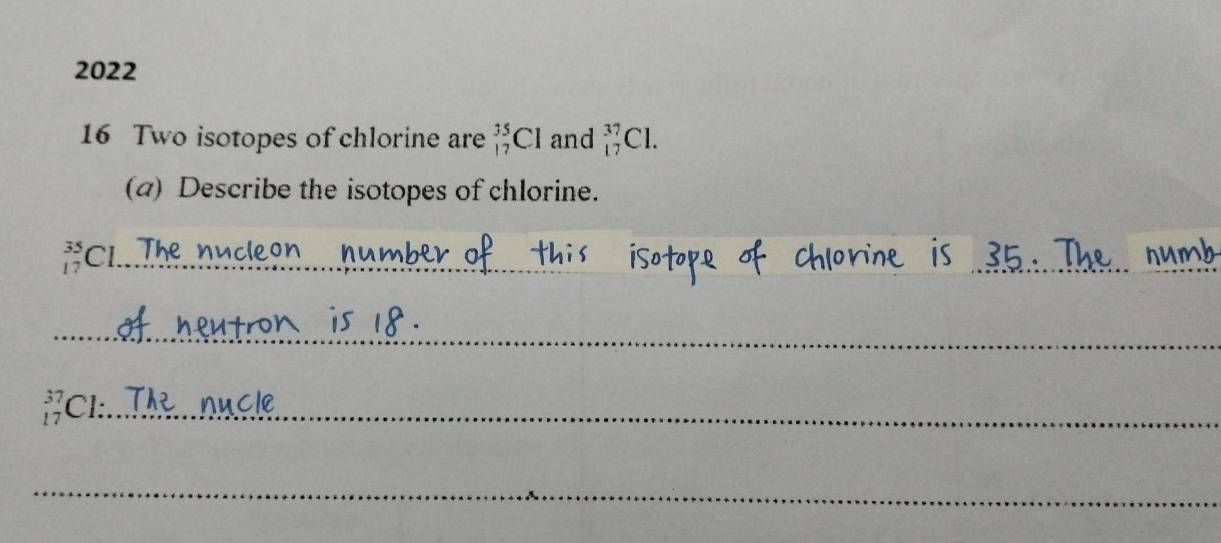 2022
16 Two isotopes of chlorine are ³⁵₁₇Cl and ³⁷₁₇Cl.
(a) Describe the isotopes of chlorine.
³⁵₁₇Cl The nucleon number of this isotope of chlorine is 35. The numb
of neutron is 18.
³⁷₁₇Cl: The nucle